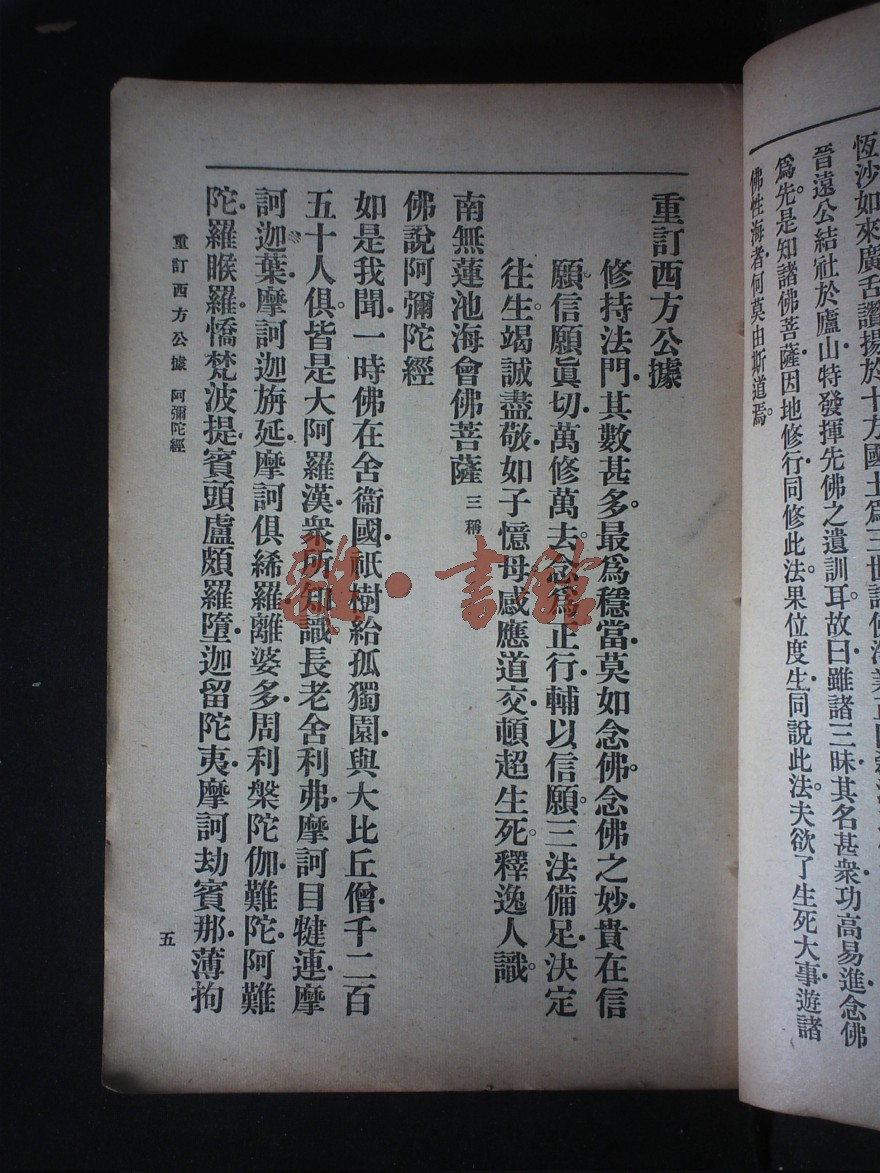 恆沙如來廣舌讚揚於十方國土爲三世諸佛淨業正因
晉遠公結社於廬山特發揮先佛之遺訓耳故曰雖諸三昧其名甚衆功高易進念佛
爲先。是知諸佛菩薩因地修行同修此法果位度生同說此法。夫欲了生死大事遊諸
佛性海者何莫由斯道焉。
重訂西方公據
修持法門其數甚多。最爲穩當莫如念佛。念佛之妙貴在信
願。信願眞切萬修萬去。念爲正行輔以信願。三法備足決定
往生。竭誠盡敬如子憶母感應道交頓超生死。釋逸人識。
南無蓮池海會佛菩薩 三稱
佛說阿彌陀經
如是我聞一時佛在舍衞國祇樹給孤獨園與大比丘僧千二百
五十人俱。皆是大阿羅漢衆所知識。長老舍利弗摩訶目犍連摩
訶迦葉摩訶迦旃延摩訶俱絺羅離婆多周利槃陀伽難陀阿難
陀羅睺羅憍梵波提賓頭盧頗羅墮迦留陀夷摩訶劫賓那薄拘
重訂西方公據 阿彌陀經
五
雜·書館